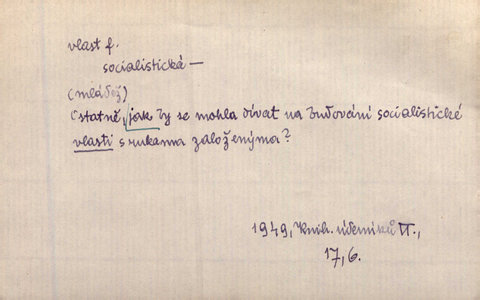 vlast f.
socialistická —
(mládež)
Ostatně, jak by se mohla dívat na budování socialistické
vlasti s rukama založenýma?
1949, Knih. úderníků VI.,
17, 6.